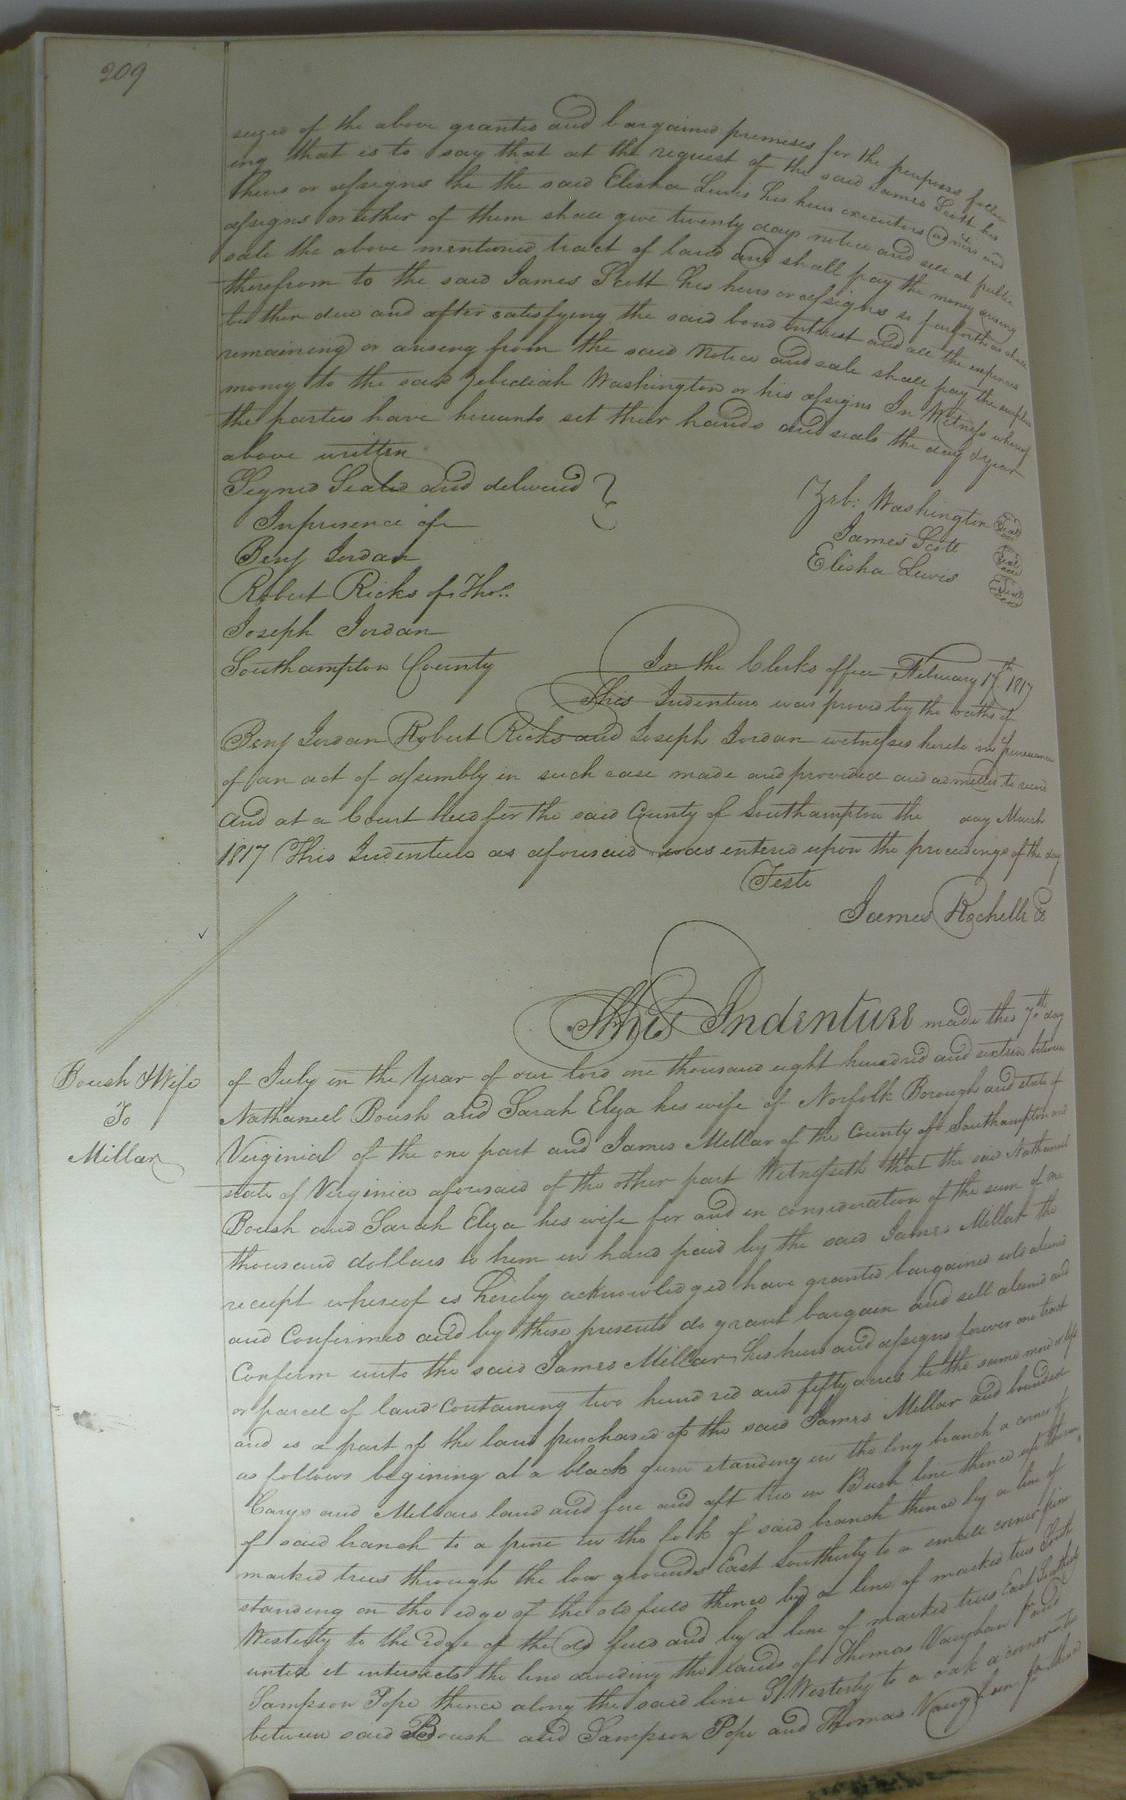 209
seized of the above granted and bargained premises for the purposes follow
ing that is to say that at the request of the said James Scott his
heirs or assigns the the said Elisha Lewis his heirs executors admrs and
assigns or either of them shall give twenty days notice and sell at public
sale the above mentioned tract of land and shall pay the money arising
therefrom to the said James Scott his heirs or assigns so far forth as shall
be then due and after satisfying the said bond interest and all the expences
remaining or arising from the said notice and sale shall pay the surplus
money to the said Zebediah Washington or his assigns In Witness whereof
the parties have hereunto set their hands and seals the day & year
above written
Signed Sealed and delivered
In presence of
Benj Jordan
Robert Ricks of Thos.
Joseph Jordan
Zeb: Washington Seal
James Scott Seal
Elisha Lewis Seal
Southampton County In the Clerks office February 17th 1817
This Indenture was proved by the oaths of
Benj Jordan Robert Ricks and Joseph Jordan witnesses hereto in pursuance
of an act of assembly in such case made and provided and admitted to record
and at a Court held for the said County of Southampton the day March
1817 This Indenture as aforesaid was entered upon the proceedings of the day
Teste
James Rochelle Cl
Boush & Wife
To
Millar
This Indenture made this 7th day
of July in the Year of our lord one thousand eight hundred and sixteen between
Nathaniel Boush and Sarah Elya his wife of Norfolk Borough and state of
Virginia of the one part and James Millar of the County of Southampton and
state of Virginia aforesaid of the other part Witnesseth that the said Nathaniel
Boush and Sarah Elya his wife for and in consideration of the sum of one
thousand dollars to him in hand paid by the said James Millar the
receipt whereof is hereby acknowledged have granted bargained sold aliened
and Confirmed and by these presents do grant bargain and sell aliened and
Confirm unto the said James Millar his heirs and assigns forever one tract
or parcel of land containing two hundred and fifty acres be the same more or less
and is a part of the land purchased of the said James Millar and bounded
as follows begining at a black gum standing in the long branch a corner of
Carys and Millars land and fore and aft tree in Bush line thence up the run
of said branch to a pine in the fork of said branch thence by a line of
marked trees through the low grounds East Southerly to a small corner pine
standing on the edge of the old field thence by a line of marked trees South
Westerly to the edge of the old field and by a line of marked trees East Southerly
until it intersects the line dividing the lands of Thomas Vaughan and
Sampson Pope thence along the said line S Westerly to a oak a corner tree
between said Boush and Sampson Pope and Thomas Vaughan